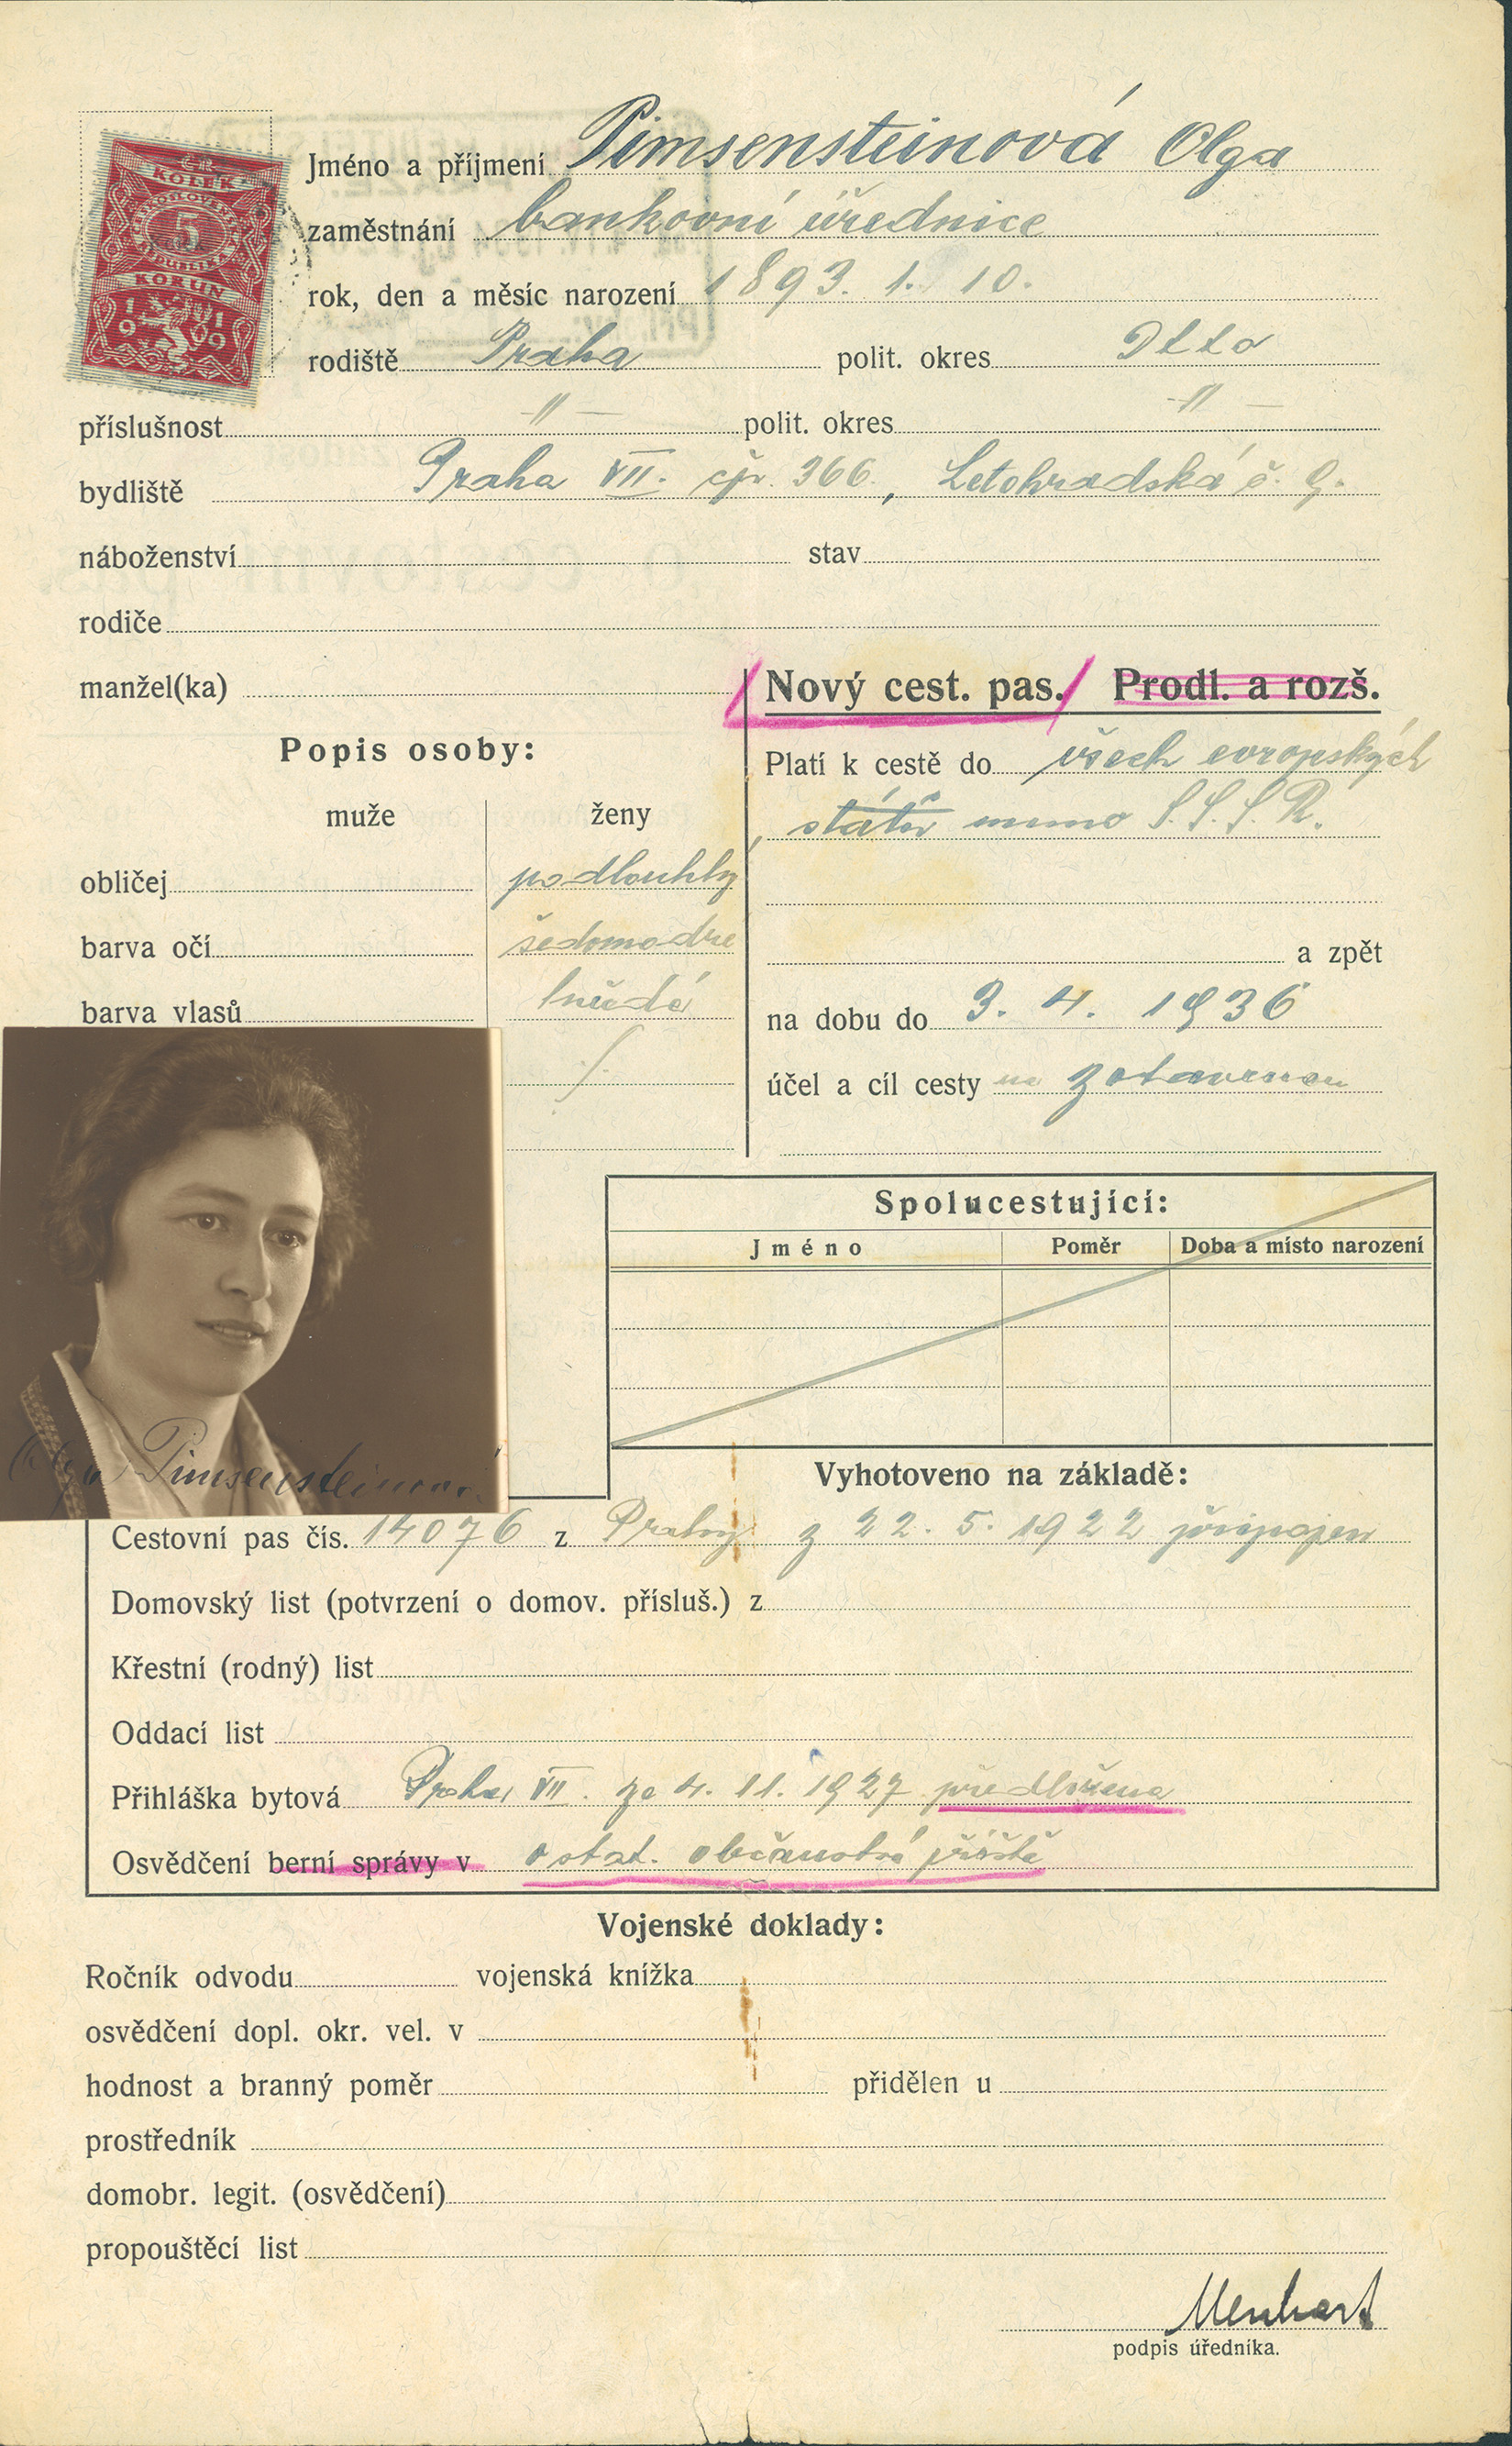 Č.R.
KOLEK
ČESKOSLOVENSKÁ
5
REPUBLIKA
KORUN
19 19
Jméno a příjmení Pimsensteinová Olga
zaměstnání bankovní úřednice
rok, den a měsíc narození 1893. 1. 10.
rodiště Praha polit. okres Dtto
příslušnost -"- polit. okres -"-
bydliště Praha VII. čp. 366, Letohradská č. 9.
náboženství stav
rodiče
manžel(ka)
Nový cest. pas. Prodl. a rozš.
Popis osoby:
muže ženy
obličej podlouhlý
barva očí šedomodré
barva vlasů hnědá
Platí k cestě do všech evropských
států mimo S.S.S.R.
a zpět
na dobu do 3. 4. 1936
účel a cíl cesty na zotavenou
Olga Pimsensteinová
Spolucestující:
Jméno Poměr Doba a místo narození
Vyhotoveno na základě:
Cestovní pas čís. 14076 z Prahy z 22. 5. 1922 připojen
Domovský list (potvrzení o domov. přísluš.) z
Křestní (rodný) list
Oddací list
Přihláška bytová Praha VII. ze 4. 11. 1927 předložena
Osvědčení berní správy v o stat. občanství příště
Vojenské doklady:
Ročník odvodu vojenská knížka
osvědčení dopl. okr. vel. v
hodnost a branný poměr přidělen u
prostředník
domobr. legit. (osvědčení)
propouštěcí list
Menhart
podpis úředníka.